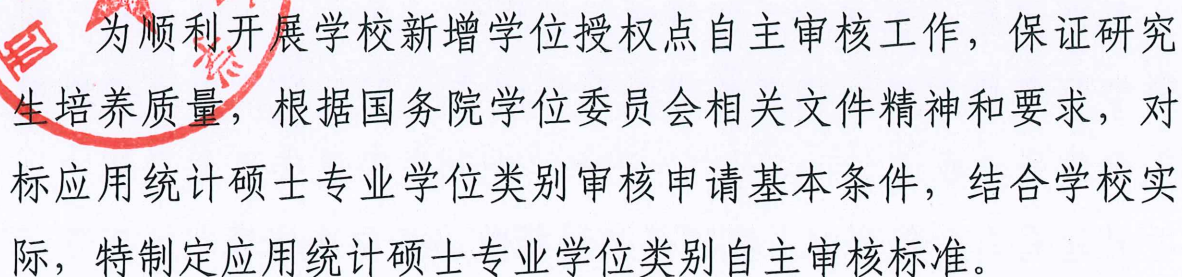 为顺利开展学校新增学位授权点自主审核工作，保证研究
生培养质量，根据国务院学位委员会相关文件精神和要求，对
标应用统计硕士专业学位类别审核申请基本条件，结合学校实
际，特制定应用统计硕士专业学位类别自主审核标准。